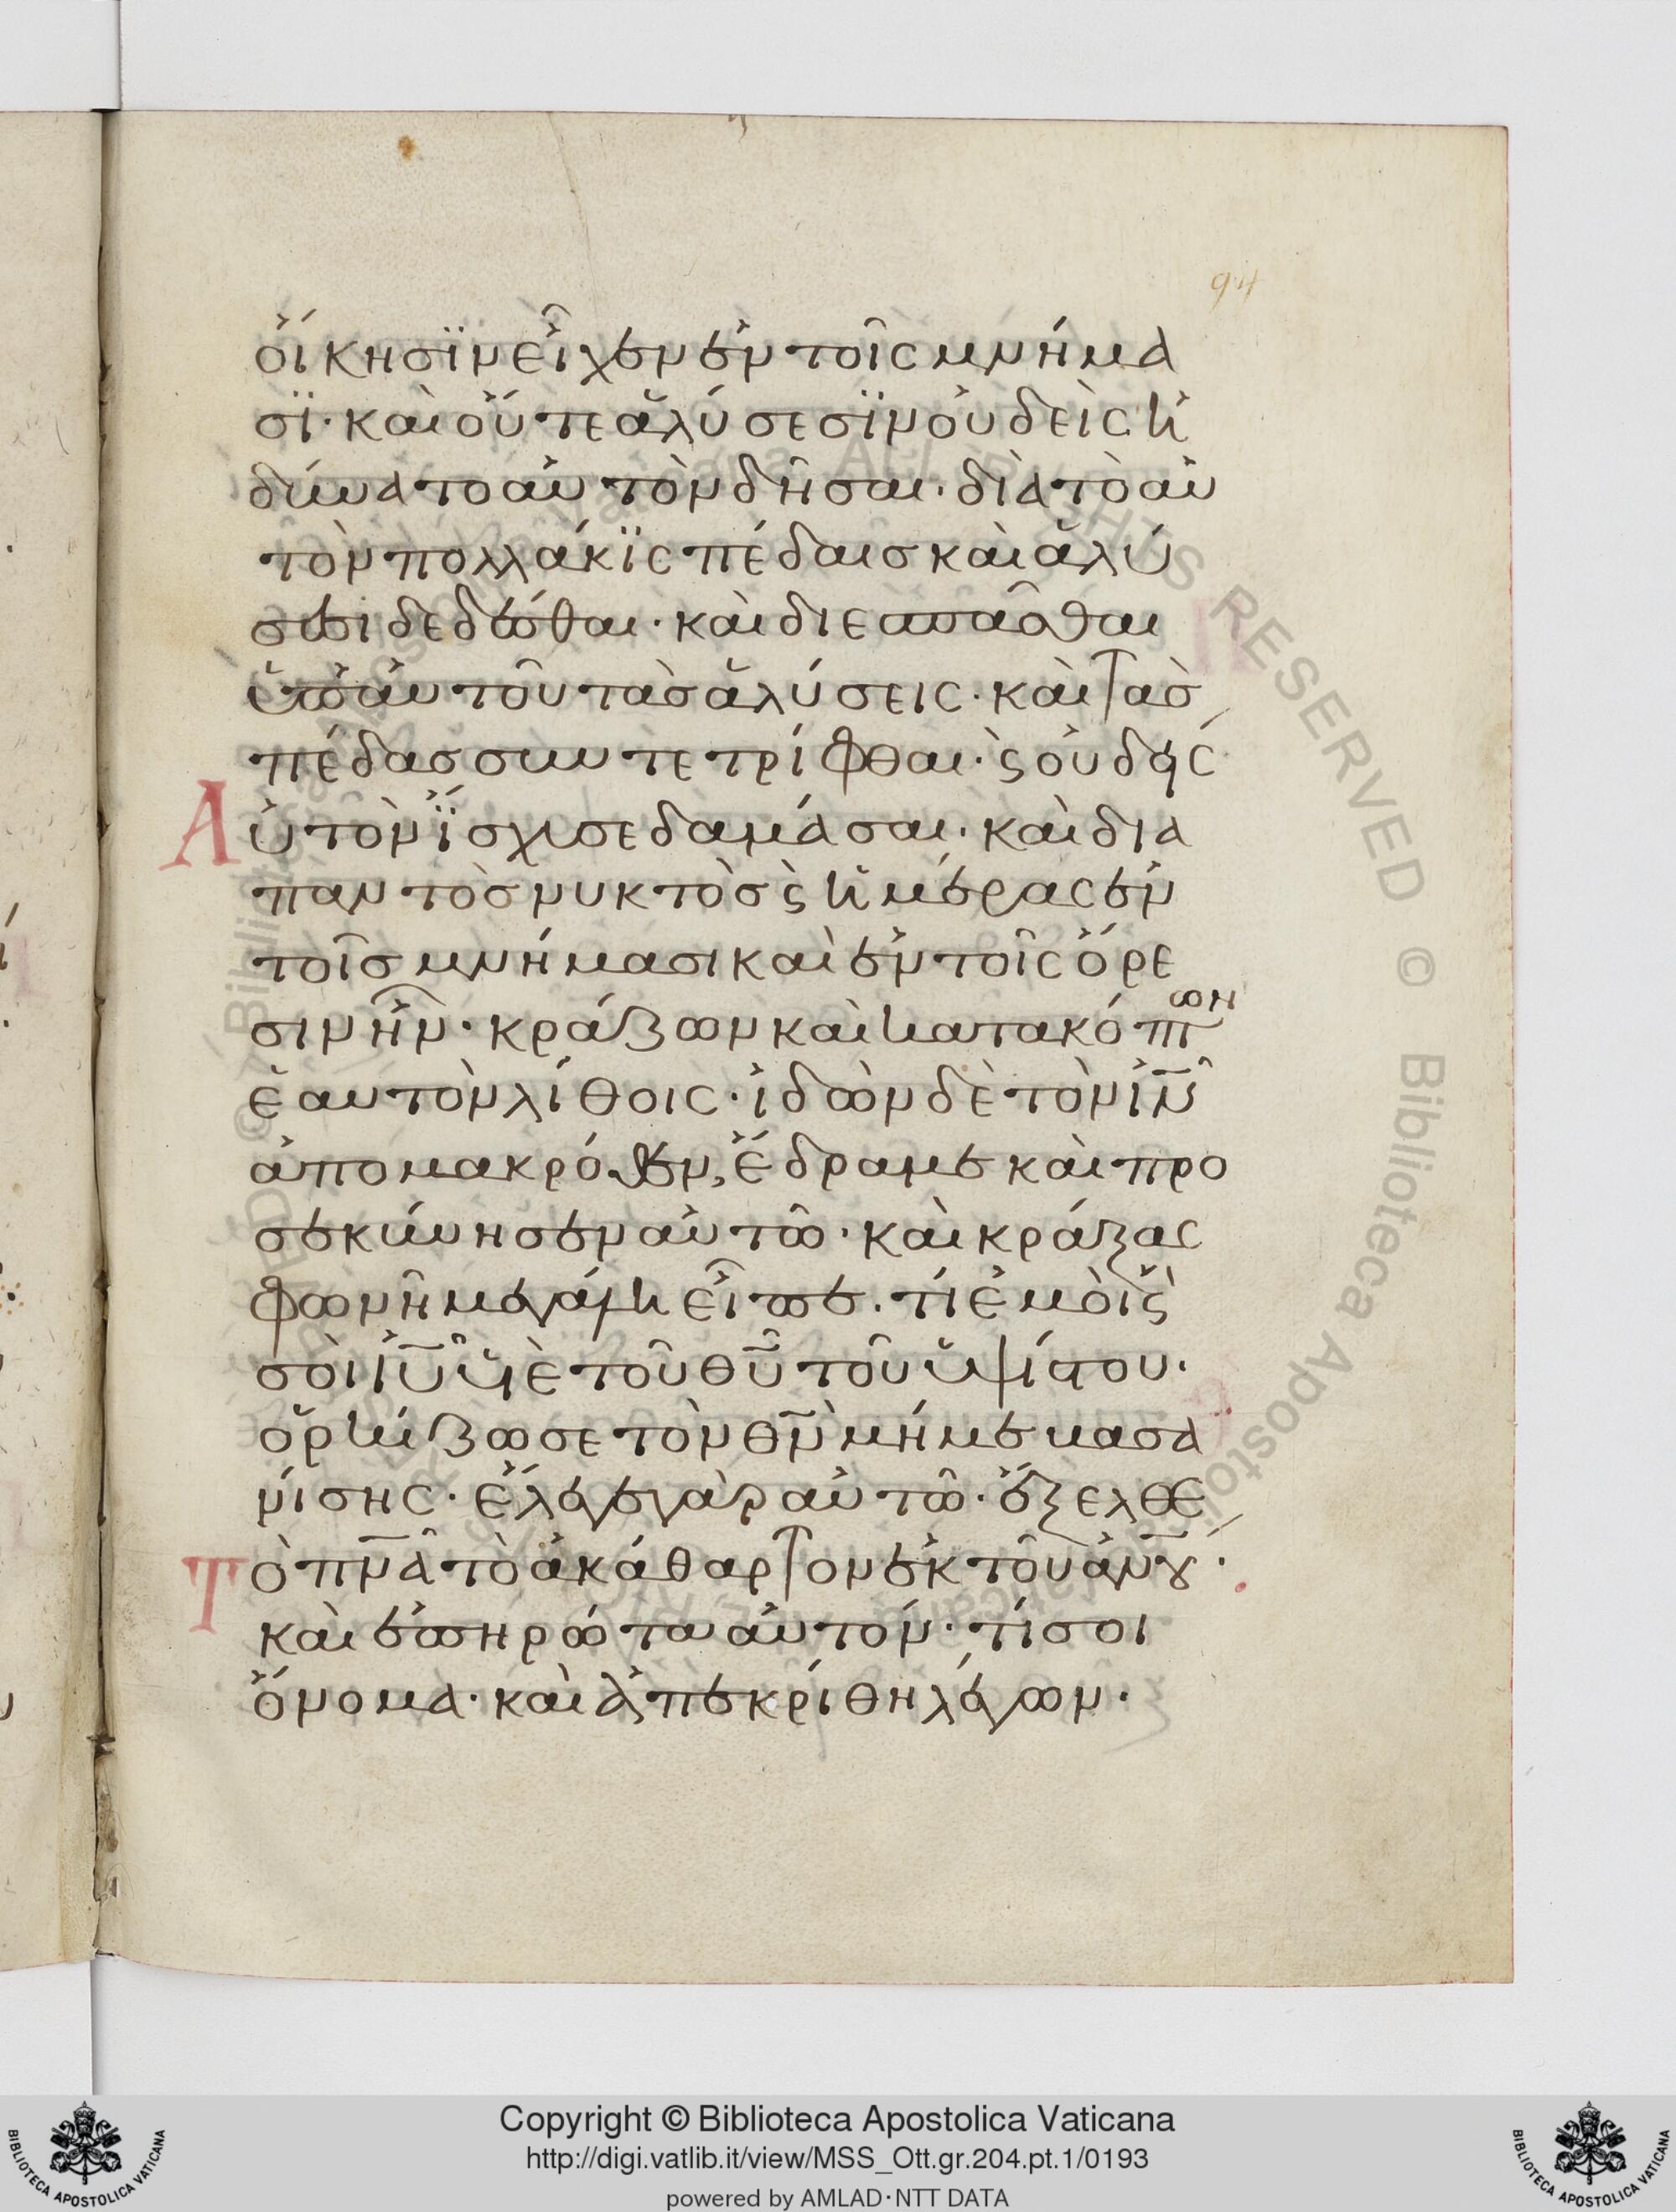 94
οἴκησϊν εἶχεν ἐν τοῖς μνήμα
σϊ· καὶ οὔτε ἁλύσεσϊν οὐδεὶς ἠ
δύνατο αὐτὸν δῆσαι· διὰ τὸ αὐ
τὸν πολλάκϊς πέδαις καὶ ἁλύ
σεσι δεδέσθαι· καὶ διεσπᾶσθαι
ὑπ᾽ αὐτοῦ τὰς ἁλύσεις· καὶ τὰς
πέδας συντετρίφθαι· ϛ οὐδεὶς
Αὐτὸν ἴσχυσε δαμάσαι· καὶ δια
παντὸς νυκτὸς ϛ ἡμέρας ἐν
τοῖς μνήμασι καὶ ἐν τοῖς ὄρε
σιν ἦν· κράζων καὶ κατακόπτων
ἑαυτὸν λίθοις· ἰδὼν δὲ τὸν ἰν
ἀπομακρόθεν, ἔδραμε καὶ προ
σεκύνησεν αὐτῶ· καὶ κράξας
φωνῆ μεγάλη εἶπε· τί ἐμοὶ ϛ
σοὶ ιῦ ὑιὲ τοῦ θῦ τοῦ ὑψίστου·
ὁρκίζω σε τὸν θν μή με βασα
νίσης· ἔλεγε γὰρ αὐτῶ· ἔξελθε
Τὸ πνα τὸ ἀκάθαρτον ἐκ τοῦ ἀνου·
καὶ ἐπηρώτα αὐτόν· τί σοι
ὄνομα· καὶ ἀπεκρίθη λέγων·
Copyright © Biblioteca Apostolica Vaticana
http://digi.vatlib.it/view/MSS_Ott.gr.204.pt.1/0193
powered by AMLAD·NTT DATA
BIBLIOTECA APOSTOLICA VATICANA
BIBLIOTECA APOSTOLICA VATICANA